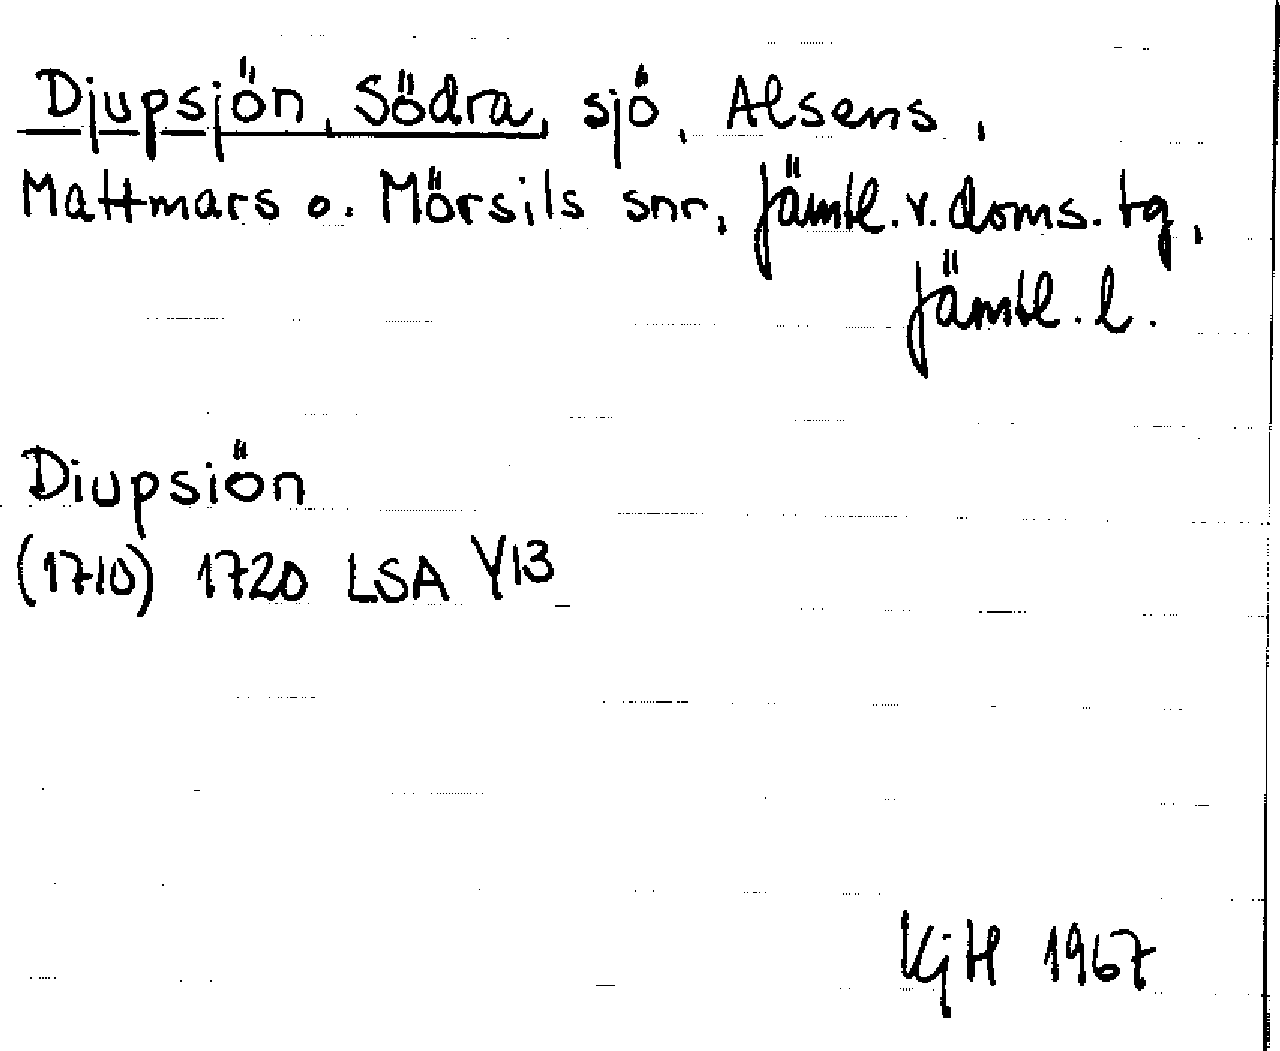 Djupsjön, Södra, sjö, Alsens,
Mattmars o. Mörsils snr, Jämtl. v. doms. tg,
Jämtl. l.
Diupsiön
(1710) 1720 LSA Y13
KjH 1967